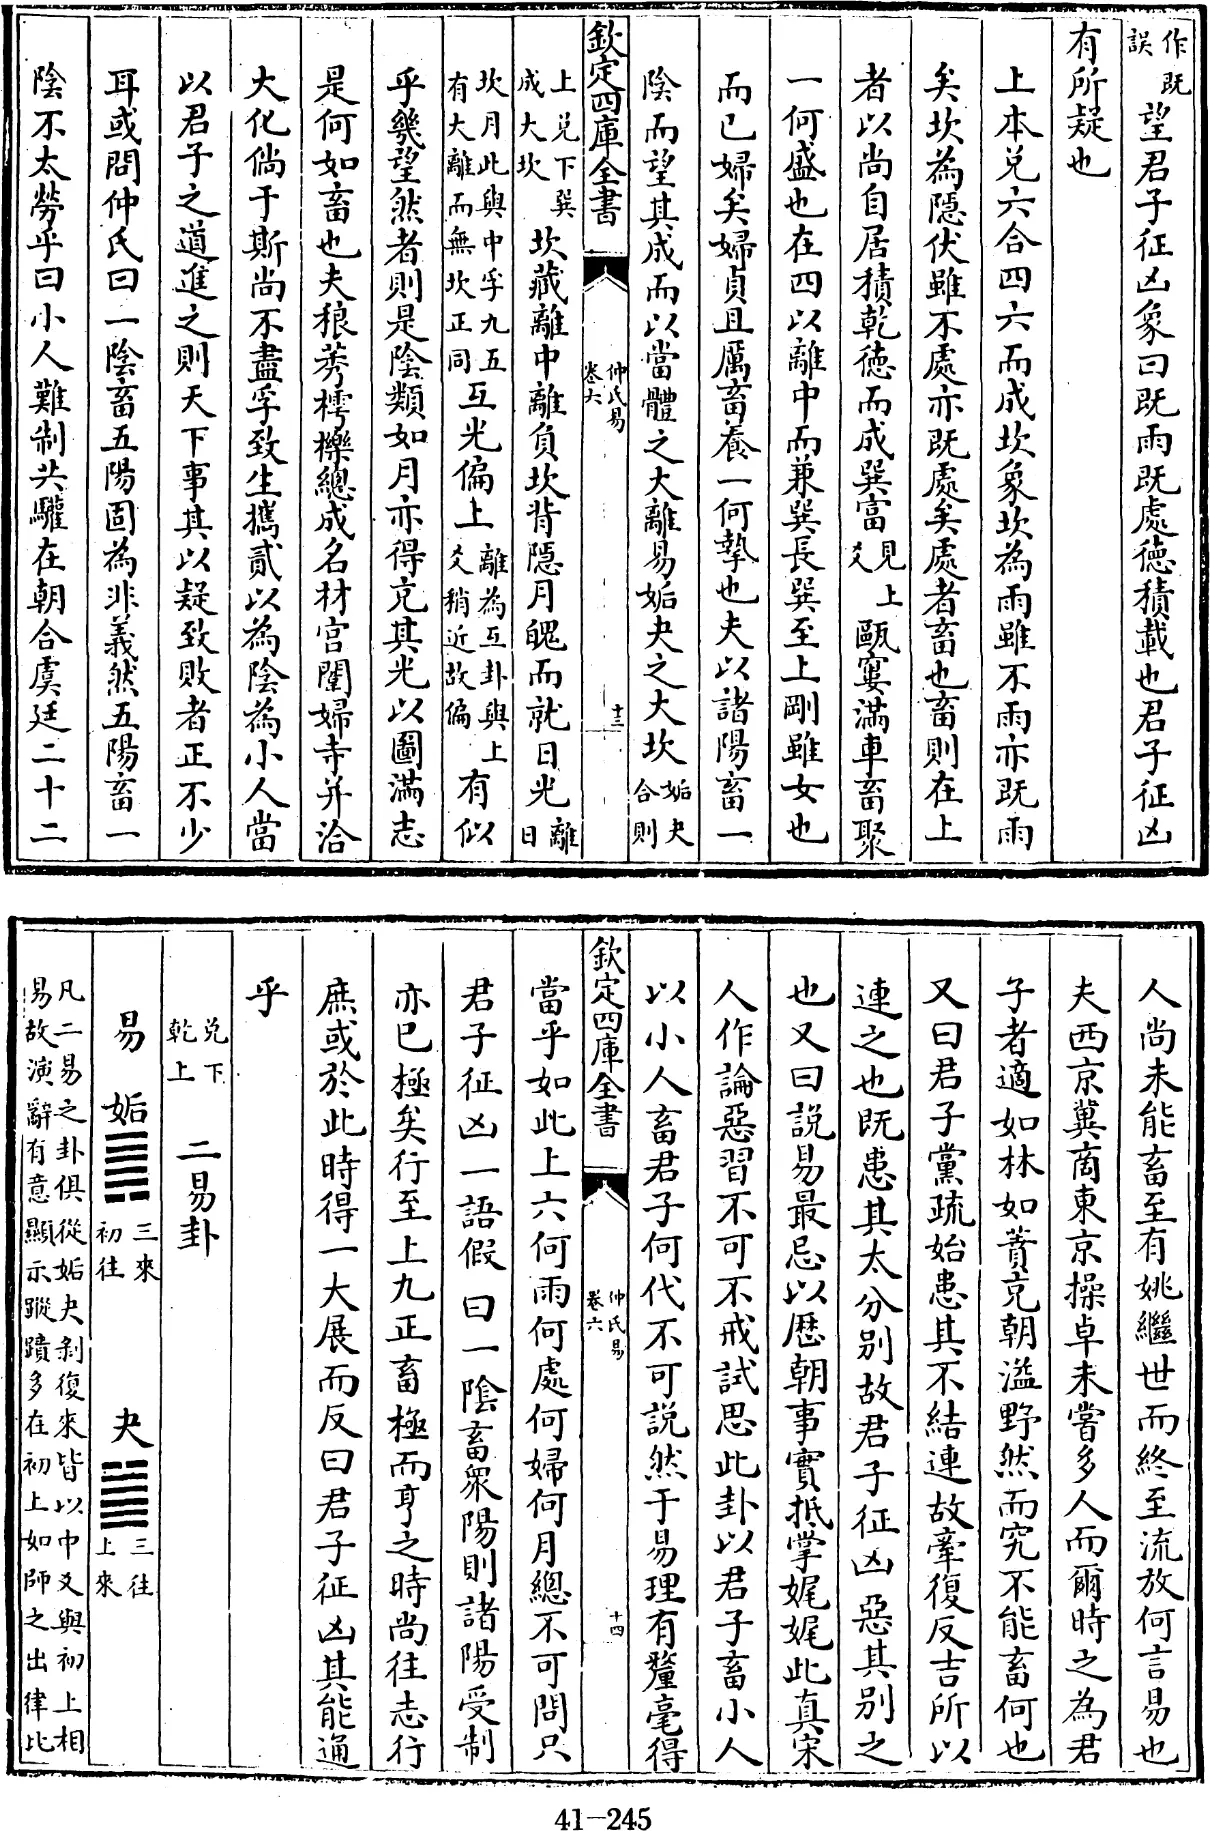 作既誤望君子征凶象曰既雨既處德積載也君子征凶
有所疑也
上本兌六合四六而成坎象坎為雨雖不雨亦既雨
矣坎為隱伏雖不處亦既處矣處者畜也畜則在上
者以尚自居積乾德而成巽富見上爻甌窶滿車畜聚
一何盛也在四以離中而兼巽長巽至上剛雖女也
而已婦矣婦貞且厲畜養一何摯也夫以諸陽畜一
陰而望其成而以當體之大離易姤夬之大坎姤夬合則
欽定四庫全書
仲氏易
卷六
十三
上兌下巽成大坎坎藏離中離負坎背隱月魄而就日光離日
坎月此與中孚九五有大離而無坎正同互光偏上離為互卦與上爻稍近故偏有似
乎幾望然者則是陰類如月亦得充其光以圖滿志
是何如畜也夫稂莠樗櫟總成名材宫闈婦寺并洽
大化倘于斯尚不盡孚致生攜貳以為陰為小人當
以君子之道進之則天下事其以疑致敗者正不少
耳或問仲氏曰一陰畜五陽固為非義然五陽畜一
陰不太勞乎曰小人難制共驩在朝合虞廷二十二
人尚未能畜至有姚繼世而終至流放何言易也
夫西京冀商東京操卓未嘗多人而爾時之為君
子者適如林如蕡充朝溢野然而究不能畜何也
又曰君子黨疏始患其不結連故牽復反吉所以
連之也既患其太分别故君子征凶惡其别之
也又曰說易最忌以歷朝事實抵掌娓娓此真宋
人作論惡習不可不戒試思此卦以君子畜小人
以小人畜君子何代不可說然于易理有釐毫得
欽定四庫全書
仲氏易
卷六
十四
當乎如此上六何雨何處何婦何月總不可問只
君子征凶一語假曰一陰畜衆陽則諸陽受制
亦已極矣行至上九正畜極而亨之時尚往志行
庶或於此時得一大展而反曰君子征凶其能通
乎
兌下乾上 二易卦
易 姤䷫三來初往 夬䷪三往上來
凡二易之卦俱從姤夬剝復來皆以中爻與初上相
易故演辭有意顯示蹤蹟多在初上如師之出律比
41-245